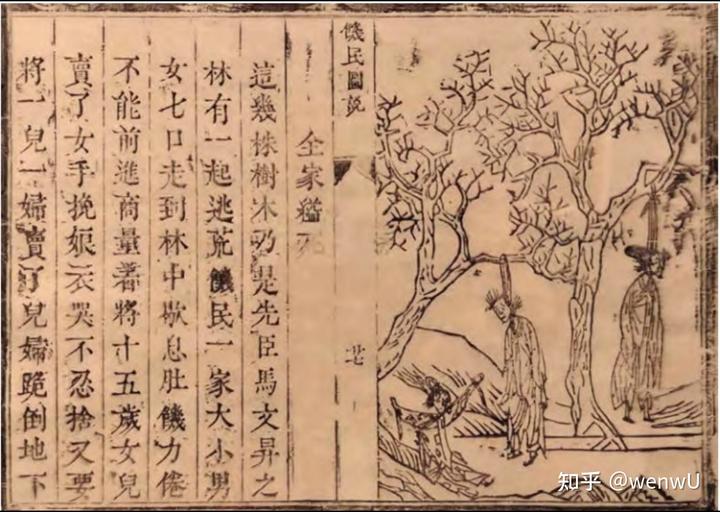 饑民圖説
廿七
全家縊死
這幾株樹木乃是先臣馬文昇之
林有一起逃荒饑民一家大小男
女七口走到林中歇息肚饑力倦
不能前進商量着將十五歲女兒
賣了女手挽娘衣哭不忍捨又要
將一兒一婦賣了兒婦跪倒地下
知乎 @wenwU